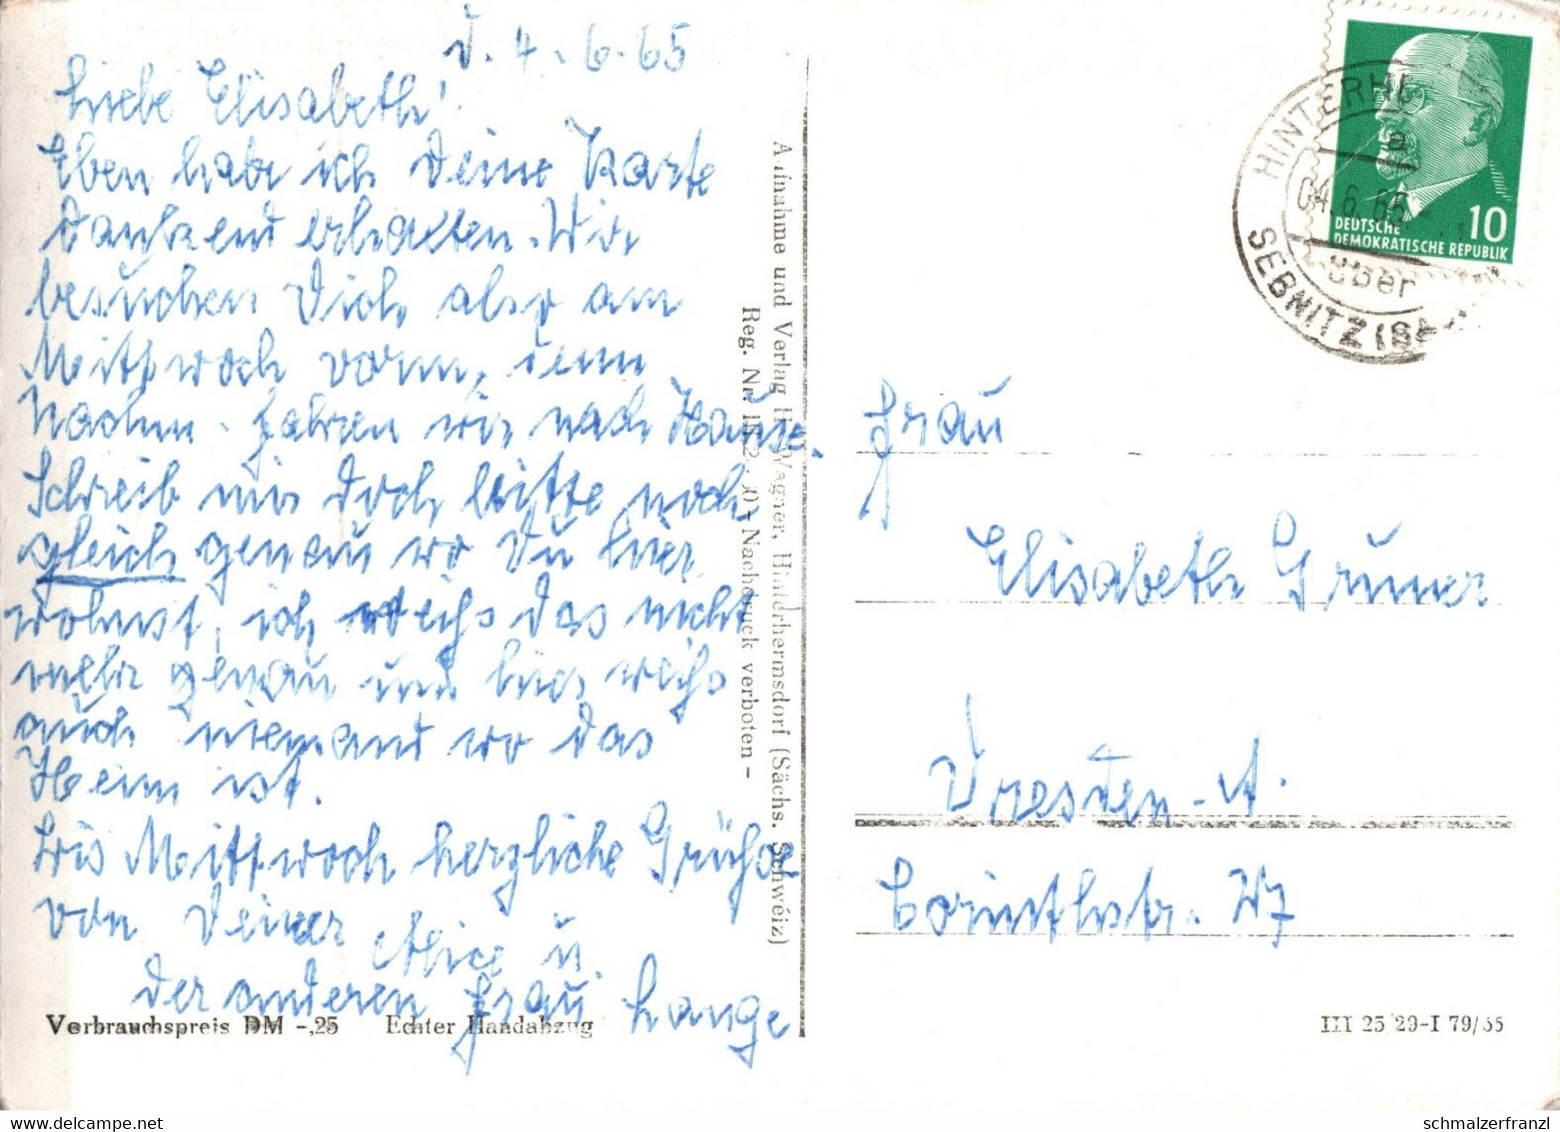 d. 4.6.65
Liebe Elisabeth!
Eben habe ich Deine Karte
dankend erhalten. Wir
besuchen Dich also am
Mittwoch vorm, denn
Nachm. fahren wir nach Hause.
Schreib mir doch bitte noch
gleich genau wo Du hier
wohnst, ich weiß das nicht
mehr genau und hier weiß
auch niemand wo das
Heim ist.
Bis Mittwoch herzliche Grüße
von Deiner Alice u.
der anderen Frau Lange
Verbrauchspreis DM -,25 Echter Handabzug
Aufnahme und Verlag H. Wagner, Hinterhermsdorf (Sächs. Schweiz)
Reg. Nr. Nachdruck verboten -
HINTERH
a
04.6.65
über
SEBNITZ (SÄ
DEUTSCHE
DEMOKRATISCHE REPUBLIK
10
Frau
Elisabeth Gruner
Dresden-A.
Corinthstr.
III 25/29-I 79/55
schmalzerfranzl